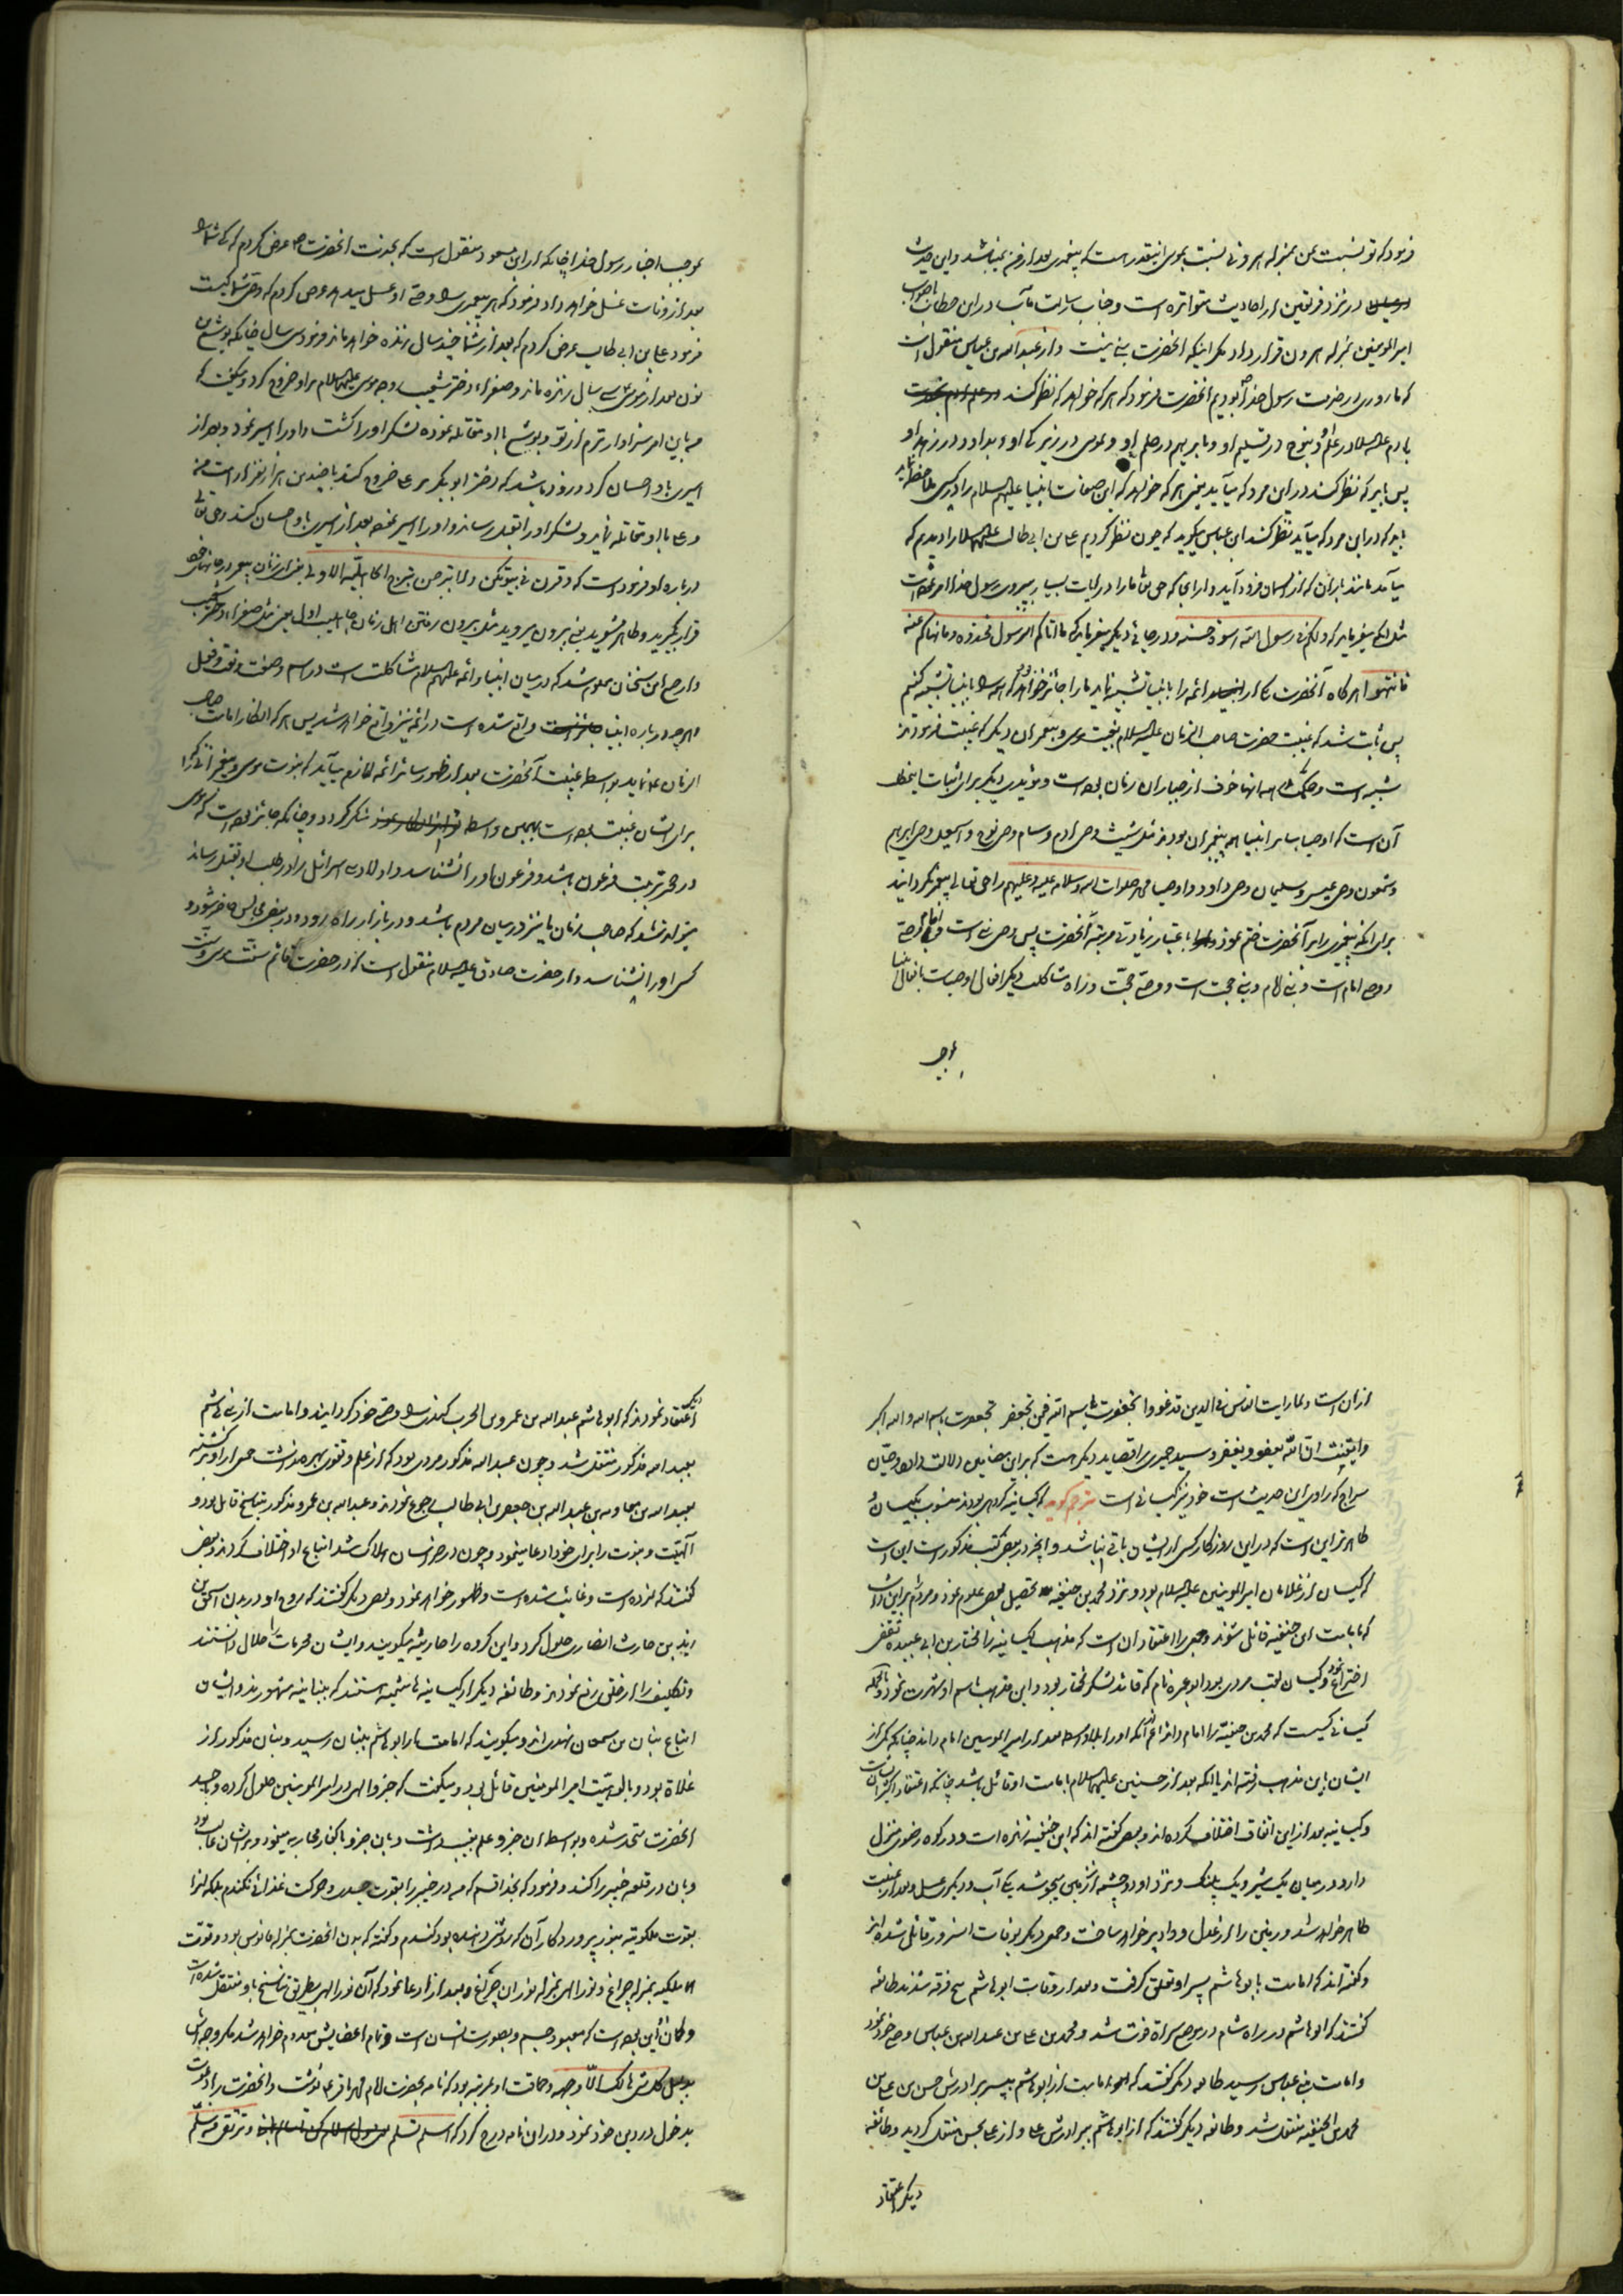 فرمود که تو نسبت بمن بمنزله هرونی نسبت بموسی اینقدر هست که پیغمبری بعد از من نمیباشد و این حدیث
در نزد فریقین از احادیث متواتره است و جناب رسالت مآب در این خطاب
امیر المومنین بمنزله هرون قرار داد مگر اینکه انحضرت نبی نیست و از عبدالله بن عباس منقول است
که ما روزی در خدمت رسول خدا بودیم انحضرت فرمود که هر که خواهد که نظر کند
بادم علیه السلام در علم او و بنوح در تسلیم او و بابرهیم در حلم او و بموسی در زیرکی او و بداود در زهد او
پس باید که نظر کند در این مرد که میآید یعنی هر که خواهد که این صفات انبیا علیهم السلام را در کسی ملاحظه نماید
باید که در این مرد که میآید نظر کند ابن عباس میگوید که چون نظر کردیم علی بن ابی طالب علیهما السلام را دیدیم که
میآمد مانند باران که از آسمان فرود آید و از انجا که حق تعالی ما را در آیات بسیار بپیروی رسول خدا امر نموده است
مثل انکه میفرماید که ولکم فی رسول الله اسوة حسنه و در جائی دیگر میفرماید که ما اتاکم الرسول فخذوه و ما نهاکم عنه
فانتهوا هر گاه آنحضرت یکی از ائمه را بانبیا تشبیه نماید ما را جائز خواهد بود که او را بانبیا تشبیه کنیم
پس ثابت شد که غیبت حضرت صاحب الزمان علیه السلام بغیبت موسی و پیغمبران دیگر که غیبت فرمودند
شبیه است و حکمت همه انها خوف از جباران زمان بوده است و مؤیدی دیگر برای اثبات اینمطلب
آن است که اوصیا سایر انبیا همه پیغمبران بودند مثل شیث وصی ادم و سام وصی نوح و اسمعیل وصی ابراهیم
و شمعون وصی عیسی و سلیمان وصی داود و اوصیا محمد صلوات الله و سلامه علیه و علیهم را حق تعالی پیغمبر نگردانید
برای انکه پیغمبری را بر آنحضرت ختم نمود باعتبار زیادتی مرتبه آنحضرت پس وصی نبی است
و وصی امام است و نبی امام و نبی حجت است و وصی حجت و از راه مشاکلت دیگر افعال اوصیا است بافعال انبیا
بموجب
بموجب اخبار رسول خدا چنانکه از ابن مسعود منقول است که بخدمت انحضرت عرض کردم که که شما را
بعد از وفات غسل خواهد داد فرمود که هر پیغمبری را وصی او غسل میدهد عرض کردم که وصی شما کیست
فرمود علی بن ابی طالب عرض کردم که بعد از شما چند سال زنده خواهد ماند فرمود سی سال چنانکه یوشع بن
نون بعد از موسی سی سال زنده ماند و صفراء دختر شعیب زوجه موسی علیهما السلام بر او خروج کرد و میگفت که
من باین امر سزاوارترم از تو و یوشع با او مقاتله نموده لشکر او را کشت و او را اسیر نمود و بعد از
اسیری با او احسان کرد و زود باشد که دختر ابوبکر بر علی خروج کند با چندین هزار نفر از امت من
و علی با او مقاتله نماید و لشکر او را بقتل رساند و او را اسیر نموده بعد از اسیری با او احسان کند و حق تعالی
در باره او فرموده است که و قرن فی بیوتکن و لا تبرجن تبرج الجاهلیة الاولی یعنی ای زنان پیغمبر در خانهای خود
قرار بگیرید و ظاهر مشوید یعنی بیرون مروید مثل بیرون رفتن اهل زمان جاهلیت اول یعنی مثل صفراء دختر شعیب
و از جمیع این سخنان معلوم شد که در میان انبیا و ائمه علیهم السلام مشاکلت است در اسم و صفت و نعت و فعل
و هر چه در باره انبیا واقع شده است در ائمه نیز واقع خواهد شد پس هر که انکار امامت صاحب
الزمان نماید بواسطه غیبت آنحضرت بعد از ظهور سائر ائمه لازم میآید که نبوت موسی و پیغمبرانی که
برای ایشان غیبت بوده است بهمین واسطه منکر گردد و چنانکه جائز بوده است که موسی
در حجر تربیت فرعون باشد و فرعون او را نشناسد و اولاد بنی اسرائیل را در طلب او بقتل رساند
میتواند شد که صاحب الزمان ما نیز در میان مردم باشد و در بازار راه رود و در بعضی مجالس حاضر شود و
کسی او را نشناسد و از حضرت صادق علیه السلام منقول است که در حضرت قائم سنت موسی و سنت
از ان است و لما رایت الناس فی الدین قد غووا تجعفرت باسم الله فیمن تجعفر تجعفرت باسم الله و الله اکبر
و ایقنت ان الله یعفو و یغفر و سید حمیری را قصاید دیگر هست که بر این مضامین دلالت دارد و حیان
سراج که راوی این حدیث است خود نیز کیسانی است مترجم گوید که کیسانیه گروهی بودند منسوب بکیسان
ظاهر تر این است که در این روزگار کسی از ایشان باقی نباشد و انچه در بعضی کتب مذکور است این است
که کیسان از غلامان امیر المومنین علیه السلام بود و نزد محمد بن حنفیه تحصیل بعضی علوم نمود و مردم را بر این داشت
که بامامت ابن حنفیه قائل شوند و بعضی را اعتقاد ان است که مذهب کیسانیه را مختار بن ابی عبیده ثقفی
اختراع نمود و کیسان لقب مردی بود ابو عمره نام که قائد لشکر مختار بود و این مذهب باسم او شهرت نمود و بالجمله
کیسانی کسیست که محمد بن حنفیه را امام داند اعم از آنکه او را بلا واسطه بعد از امیر المومنین امام داند چنانکه جمعی از
ایشان باین مذهب رفته اند یا انکه بعد از حسنین علیهما السلام بامامت او قائل باشد چنانکه اعتقاد اکثر انست
و کیسانیه بعد از این اتفاق اختلاف کرده اند و بعضی گفته اند که ابن حنفیه نمرده است و در کوه رضوی منزل
دارد در میان یک شیر و یک پلنگ و نزد او دو چشمه از زمین میجوشد یکی آب و دیگری عسل و بعد از غیبت
ظاهر خواهد شد و زمین را از عدل و داد پر خواهد ساخت و جمعی دیگر بوفات انسرور قائل شده اند
و گفته اند که امامت بابو هاشم پسر او تعلق گرفت و بعد از وفات ابو هاشم پنج فرقه شدند طائفه
گفتند که ابو هاشم در راه شام در موضع سراة فوت شد و محمد بن علی بن عبدالله بن عباس را وصی خود نمود
و امامت به بنی عباس رسید طائفه دیگر گفتند که امامت از ابو هاشم بپسر برادرش حسن بن علی بن
محمد بن الحنفیه منتقل شد و طائفه دیگر گفتند که از ابو هاشم ببرادرش علی و از علی بحسن منتقل گردید و طائفه
دیگر اعتقاد
دیگر اعتقاد نمودند که ابو هاشم عبدالله بن عمرو بن الحرب کندی را وصی خود گردانید و امامت از بنی هاشم
بعبدالله مذکور منتقل شد و چون عبدالله مذکور مردی بود که از علم و تقوی بهره نداشت جمعی از او برگشته
بعبدالله بن معاویه بن عبدالله بن جعفر بن ابی طالب رجوع نمودند و عبدالله بن عمرو مذکور بتناسخ قائل بود و
الهیت و نبوت را برای خود ادعا مینمود و چون در خراسان هلاک شد اتباع او اختلاف کردند بعضی
گفتند که نمرده است و غائب شده است و ظهور خواهد نمود و بعضی دیگر گفتند که روح او در بدن اسحق بن
زید بن حارث انصاری حلول کرد و این گروه را حارثیه میگویند و ایشان محرمات را حلال دانستند
و تکلیف را از خلق رفع نمودند و طائفه دیگر از کیسانیه هاشمیه هستند که ببنانیه مشهورند و ایشان
اتباع بنان بن سمعان نهدی اند و میگویند که امامت از ابو هاشم ببنان رسید و بنان مذکور از
غلاة بود و بالوهیت امیر المومنین قائل بود و میگفت که جزو الهی در امیر المومنین حلول کرده و بجسد
انحضرت متحد شده و بواسطه ان جزو علم بغیب داشت و بان جزو با کفار محاربه مینمود و بر ایشان غالب بود
و بان در قلعه خیبر را کند و فرمود که بخدا قسم که من در خیبر را بقوت جسدی و حرکت غذائی نکندم بلکه انرا
بقوت ملکوتیه بنور پروردگار آن که روشنی دهنده بود کندم و گفته که بدن انحضرت بمنزله فانوس بود و قوت
ملکیه بمنزله چراغ و نور الهی بمنزله نور ان چراغ و بعد از ان ادعا نمود که آن نور الهی بطریق تناسخ باو منتقل شده است
و گمانش این بوده است که معبود جسم و بصورت انسان است و تمام اعضایش معدوم خواهد شد مگر وجه اش
بدلیل کل شئ هالک الا وجهه و حماقت او بمرتبه بود که نامه بحضرت امام محمد باقر نوشت و انحضرت را دعوت
بدخول در دین خود نمود و در ان نامه درج کرد که اسلم تسلم و ترتقی من سلم